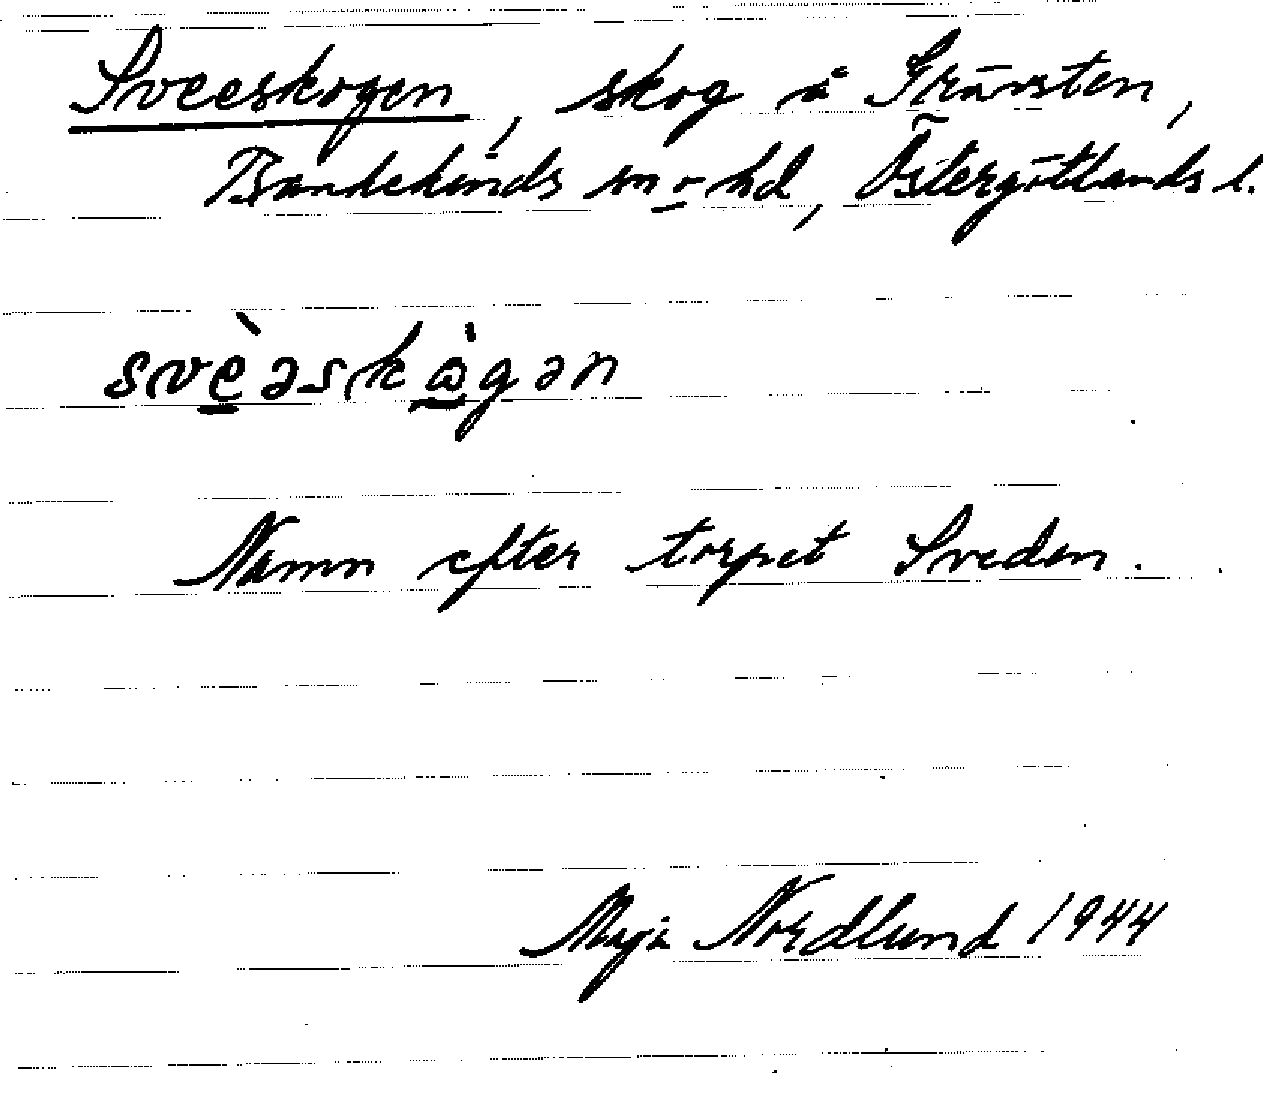 Sveeskogen, skog å Grävsten,
Bankekinds sn o hd, Östergötlands l.
svèəskàgən
Namn efter torpet Sveden.
Maja Nordlund 1944